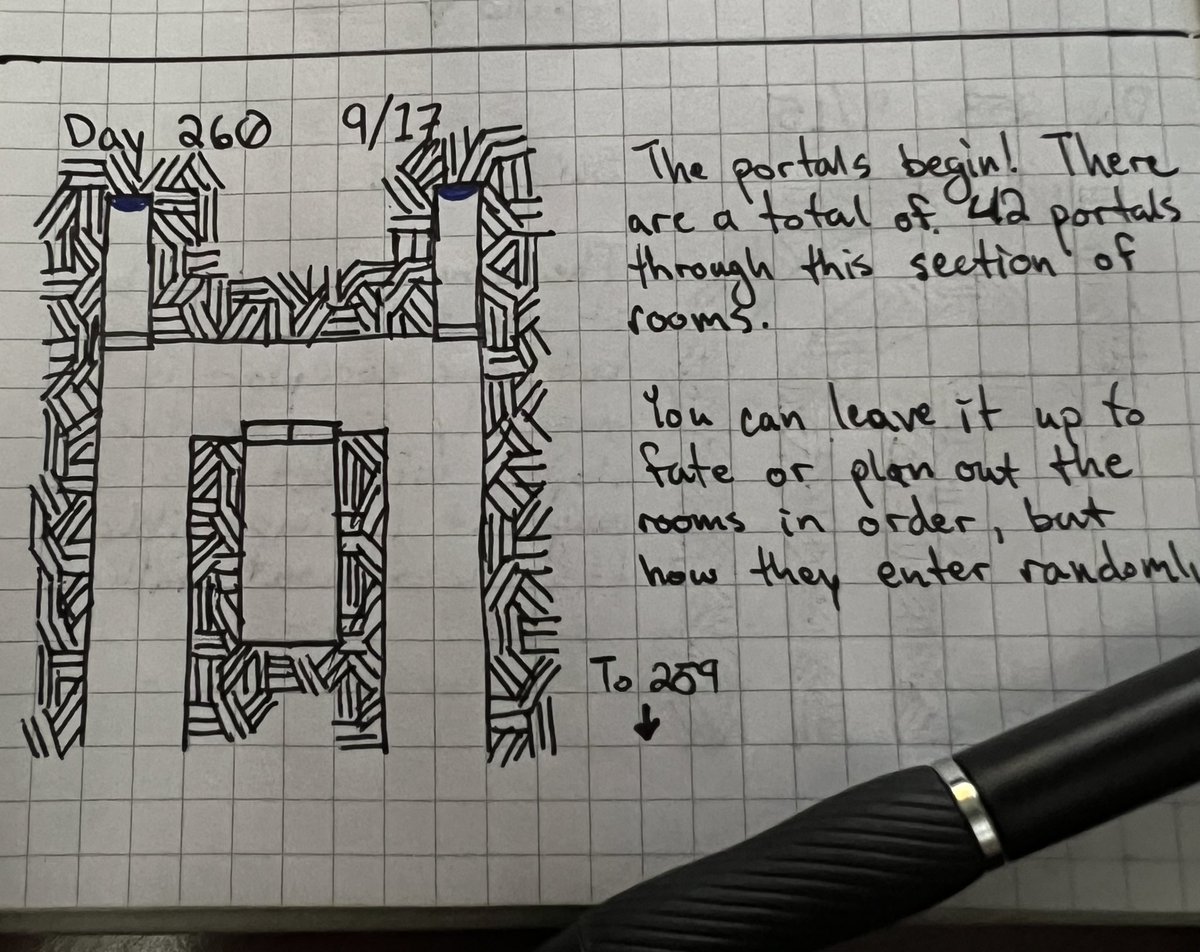 Day 260 9/17
The portals begin! There
are a total of 42 portals
through this section of
rooms.
You can leave it up to
fate or plan out the
rooms in order, but
how they enter randoml
To 259